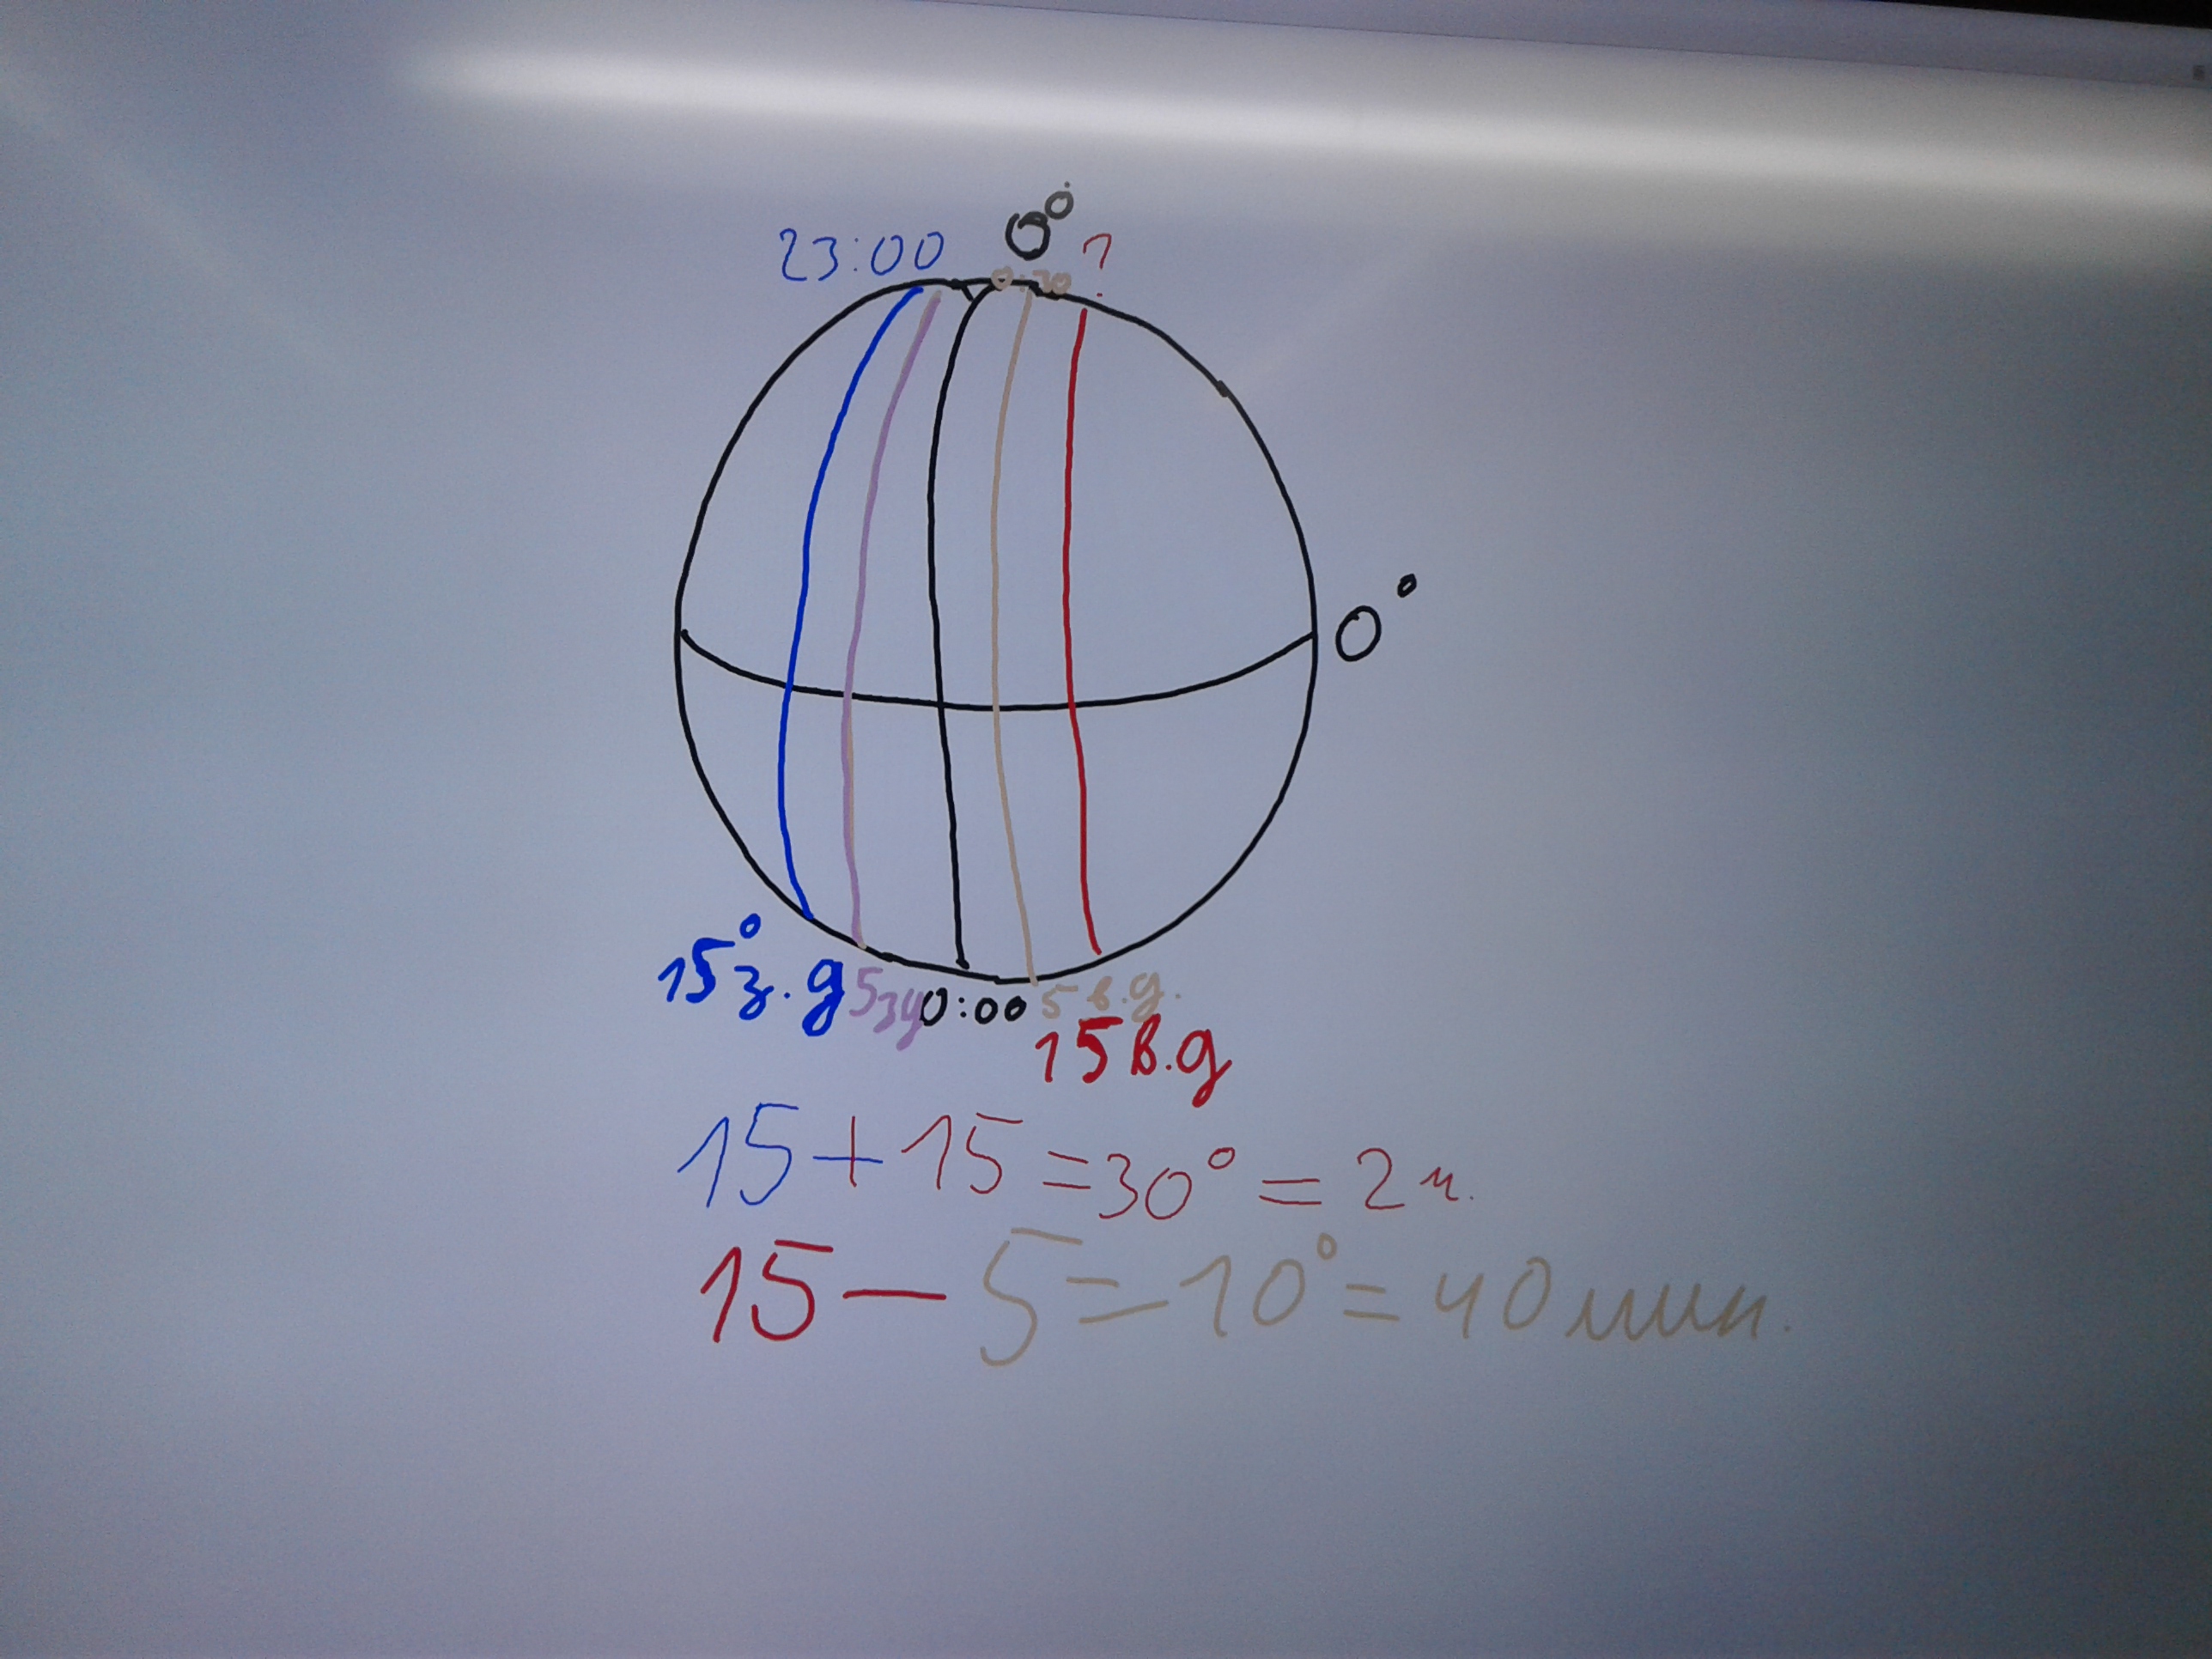 0°
23:00 ?
0:20
0°
15° з.д 5 зд 0:00 5 в.д.
15 в.д
15+15=30°=2ч.
15-5=10°=40мин.